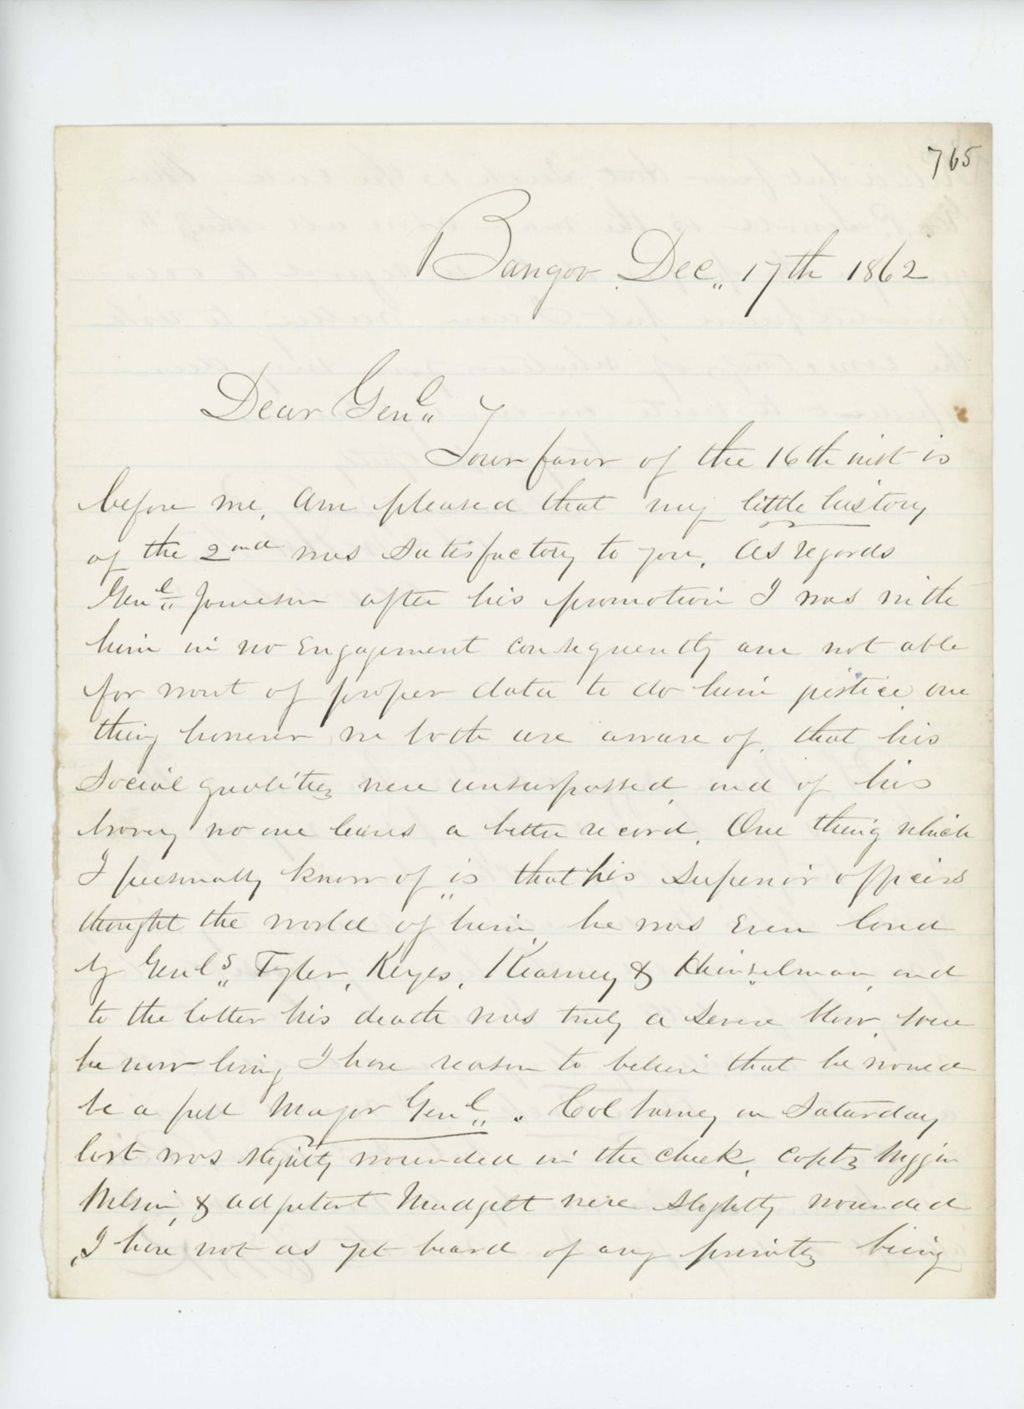 765
Bangor Dec,, 17th 1862
Dear Genl,,
Your favor of the 16th inst is
before me. Am pleased that my little history
of the 2nd was Satisfactory to you. As regards
Genl,, Jameson after his promotion I was with
him in no Engagement consequently am not able
for want of proper data to do him justice, one
thing however we both are aware of, that his
Social qualities were unsurpassed, and of his
bravery no one leaves a better record. One thing which
I personally know of,, is that his Superior officers
thought the world of him, he was Even loved
by Genls,, Tyler, Keyes, Kearney & Heinzelman, and
to the latter his death was truly a Severe blow, were
he now living I have reason to believe that he would
be a full Major Genl,,. Col Varney on Saturday
last was slightly wounded in the cheek, Capts
Wilson, & adjutant Mudgett were Slightly wounded
I have not as yet heard of any privates being